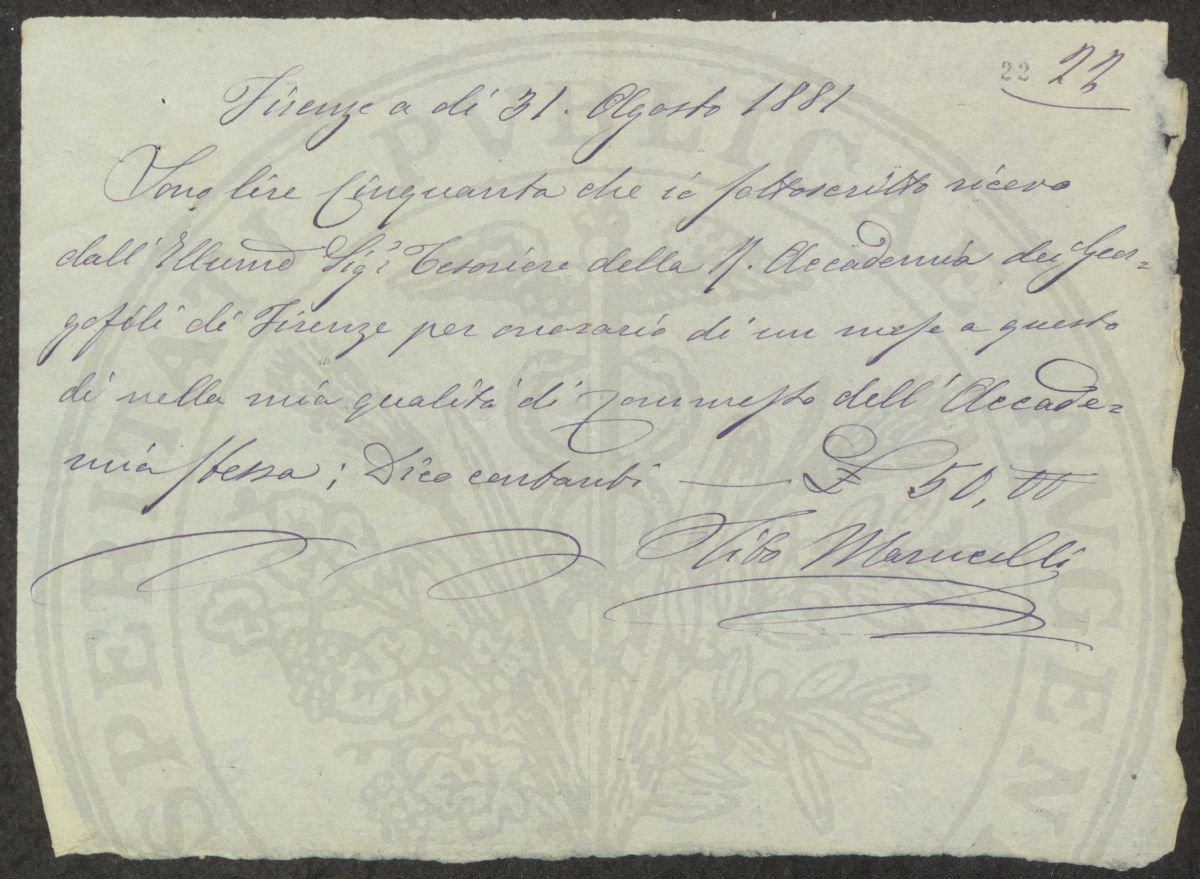 22 22
Firenze a dì 31. Agosto 1881
Sono lire Cinquanta che io sottoscritto ricevo
dall' Illumo Sigr Tesoriere della R. Accademia dei Geor=
gofili di Firenze per onorario di un mese a questo
dì nella mia qualità di Commesso dell' Accade=
mia stessa; Dico contanti — £ 50, 00
Tito Marucelli
PROSPERITATI PVBLICAE AVGENDAE